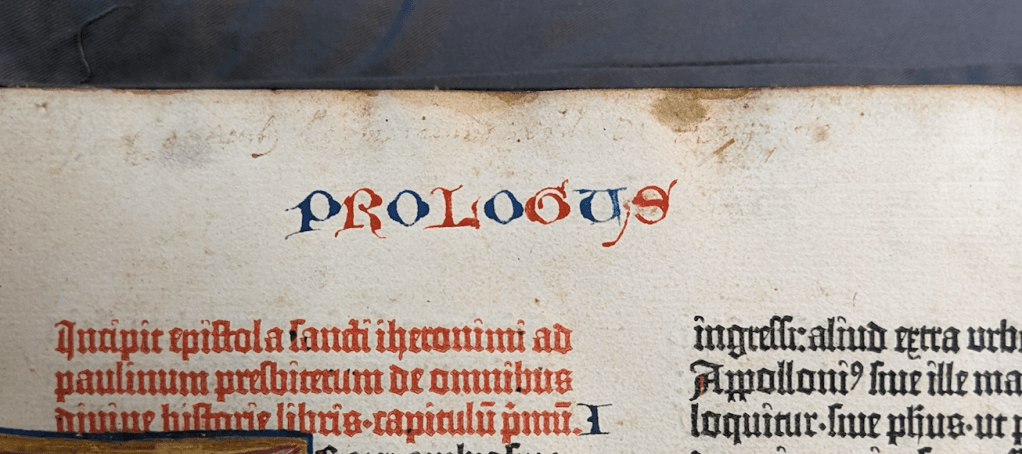 PROLOGUS
Incipit epistola sancti iheronimi ad
paulinum presbiterum de omnibus
divine historie libris·capitulū p̄mū. I
ingressi: aliud extra urbe
Appolloniꝰ sive ille ma
loquitur·sive phus·ut p